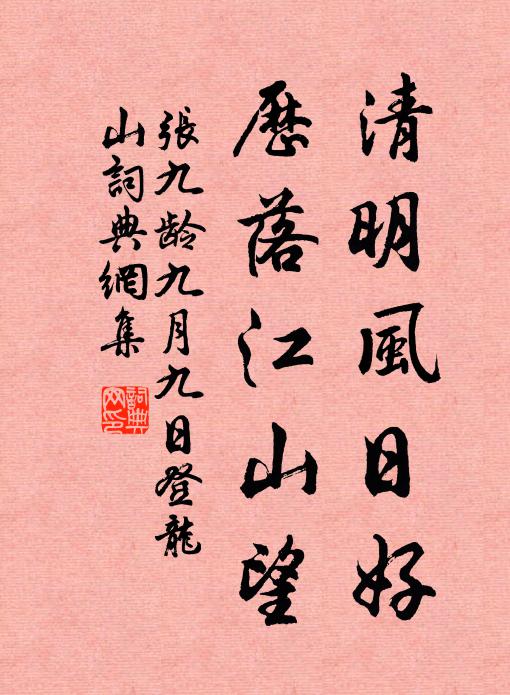 清明風日好
歷落江山望
張九龄九月九日登龍
山詞典網集
詞典
网印